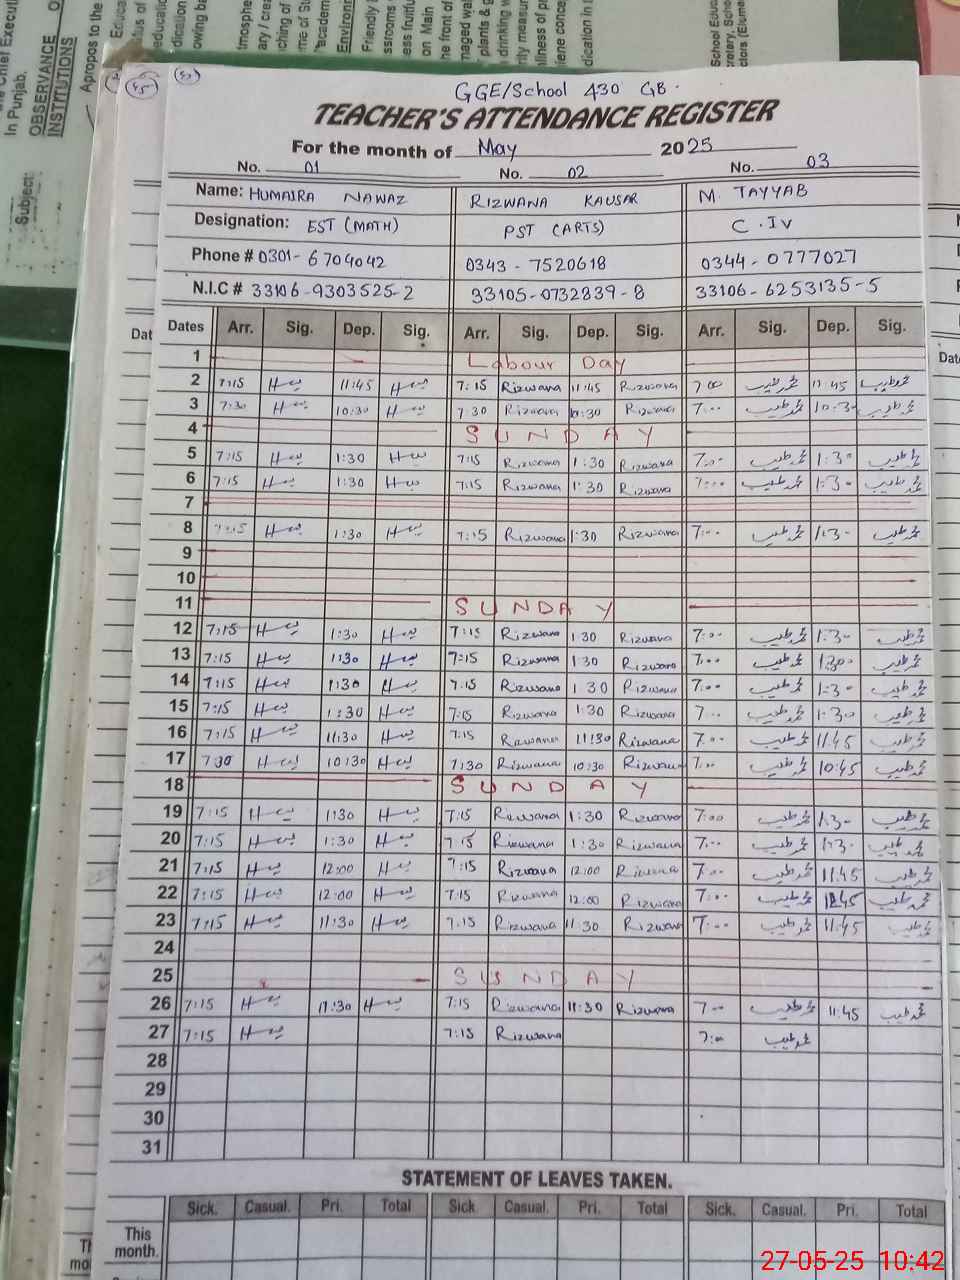 GGE/School 430 GB.
TEACHER'S ATTENDANCE REGISTER
For the month of May 2025
No. 01 No. 02 No. 03
Name: HUMAIRA NAWAZ RIZWANA KAUSAR M. TAYYAB
Designation: EST (MATH) PST (ARTS) C.IV
Phone # 0301-6704042 0343-7520618 0344-0777027
N.I.C # 33106-9303525-2 33105-0732839-8 33106-6253135-5
Dates Arr. Sig. Dep. Sig. Arr. Sig. Dep. Sig. Arr. Sig. Dep. Sig.
1 Labour Day
2 7:15 11:45 7:15 Rizwana 11:45 Rizwana 7:00 محمد طیب 11:45 محمد طیب
3 7:30 10:30 7:30 Rizwana 10:30 Rizwana 7:00 محمد طیب 10:30 محمد طیب
4 SUNDAY
5 7:15 1:30 7:15 Rizwana 1:30 Rizwana 7:00 محمد طیب 1:30 محمد طیب
6 7:15 1:30 7:15 Rizwana 1:30 Rizwana 7:00 محمد طیب 1:30 محمد طیب
7
8 7:15 1:30 7:15 Rizwana 1:30 Rizwana 7:00 محمد طیب 1:30 محمد طیب
9
10
11 SUNDAY
12 7:15 1:30 7:15 Rizwana 1:30 Rizwana 7:00 محمد طیب 1:30 محمد طیب
13 7:15 1:30 7:15 Rizwana 1:30 Rizwana 7:00 محمد طیب 1:30 محمد طیب
14 7:15 1:30 7:15 Rizwana 1:30 Rizwana 7:00 محمد طیب 1:30 محمد طیب
15 7:15 1:30 7:15 Rizwana 1:30 Rizwana 7:00 محمد طیب 1:30 محمد طیب
16 7:15 11:30 7:15 Rizwana 11:30 Rizwana 7:00 محمد طیب 11:45 محمد طیب
17 7:30 10:30 7:30 Rizwana 10:30 Rizwana 7:00 محمد طیب 10:45 محمد طیب
18 SUNDAY
19 7:15 1:30 7:15 Rizwana 1:30 Rizwana 7:00 محمد طیب 1:30 محمد طیب
20 7:15 1:30 7:15 Rizwana 1:30 Rizwana 7:00 محمد طیب 1:30 محمد طیب
21 7:15 12:00 7:15 Rizwana 12:00 Rizwana 7:00 محمد طیب 11:45 محمد طیب
22 7:15 12:00 7:15 Rizwana 12:00 Rizwana 7:00 محمد طیب محمد طیب
23 7:15 11:30 7:15 Rizwana 11:30 Rizwana 7:00 محمد طیب 11:45 محمد طیب
24
25 SUNDAY
26 7:15 11:30 7:15 Rizwana 11:30 Rizwana 7:00 محمد طیب 11:45 محمد طیب
27 7:15 7:15 Rizwana 7:00 محمد طیب
28
29
30
31
STATEMENT OF LEAVES TAKEN.
Sick. Casual. Pri. Total Sick. Casual. Pri. Total Sick. Casual. Pri. Total
This month.
27-05-25 10:42
In Punjab.
OBSERVANCE
INSTITUTIONS
Subject:
Apropos to the